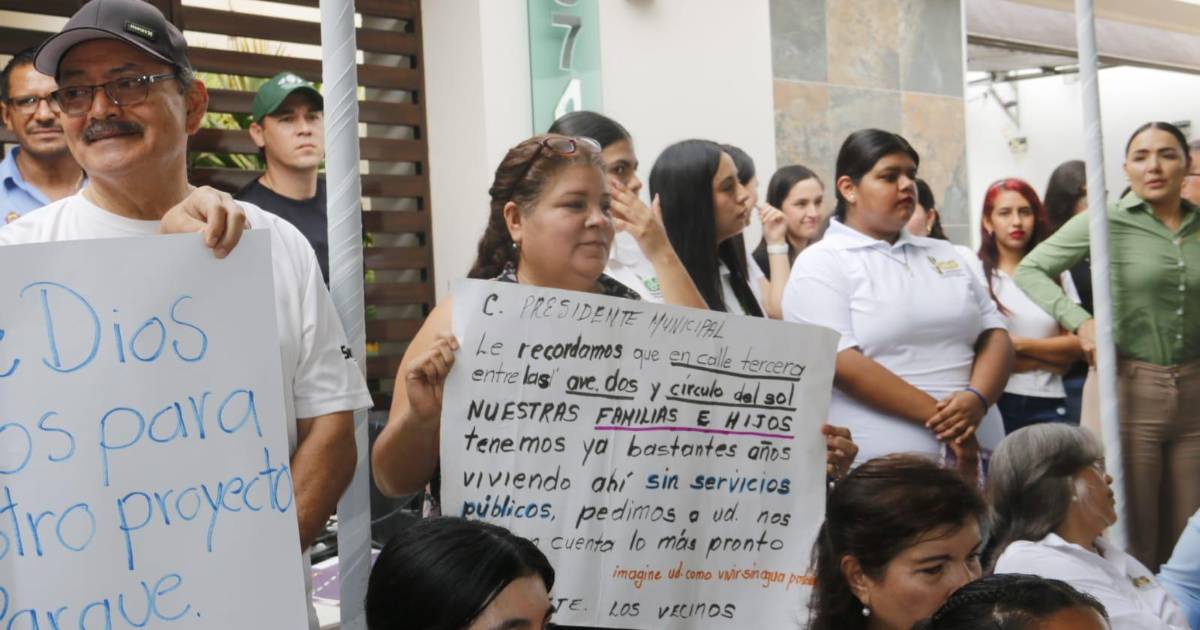 674
Dios
para
proyecto
Parque.
C. PRESIDENTE MUNICIPAL
Le recordamos que en calle tercera
entre las ave. dos y círculo del sol
NUESTRAS FAMILIAS E HIJOS
tenemos ya bastantes años
viviendo ahí sin servicios
públicos, pedimos a ud. nos
cuenta lo más pronto
imagine ud. como vivir sin agua
LOS VECINOS